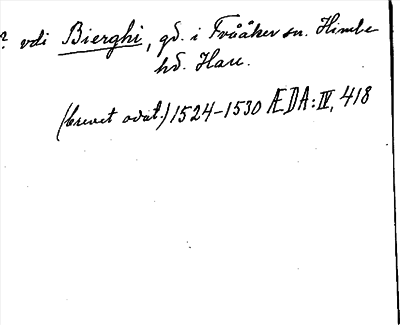 ? vdi Bierghi, gd. i Tvååker sn. Himle
hd. Hall.
(brevet odat.) 1524-1530 ÆDA: IV, 418